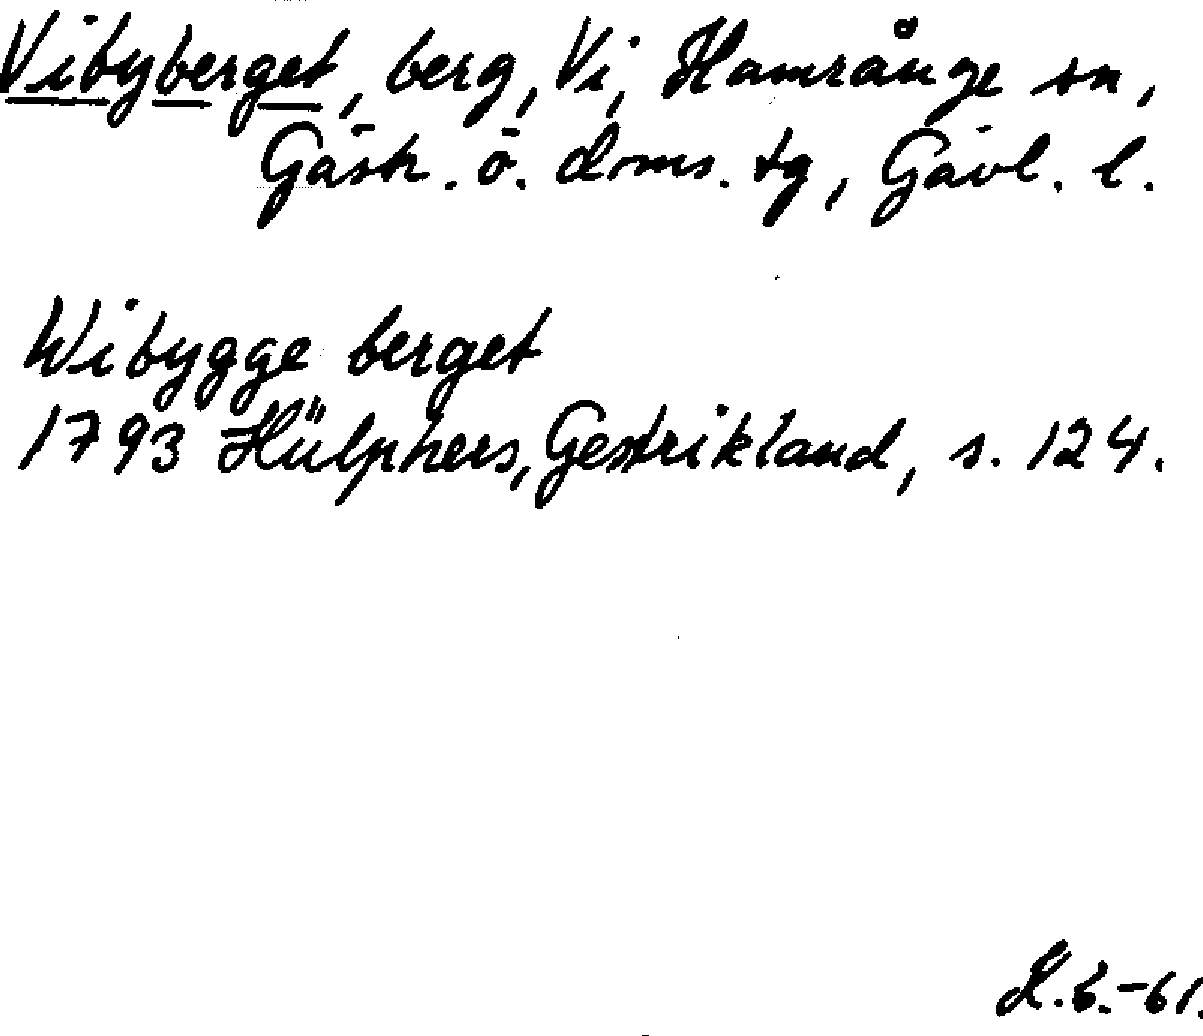 Vibyberget, berg, Vi, Hamrånge sn,
Gästr. ö. doms. tg, Gävl. l.
Wibygge berget
1793 Hülphers, Gestrikland, s. 124.
H.b.-61.